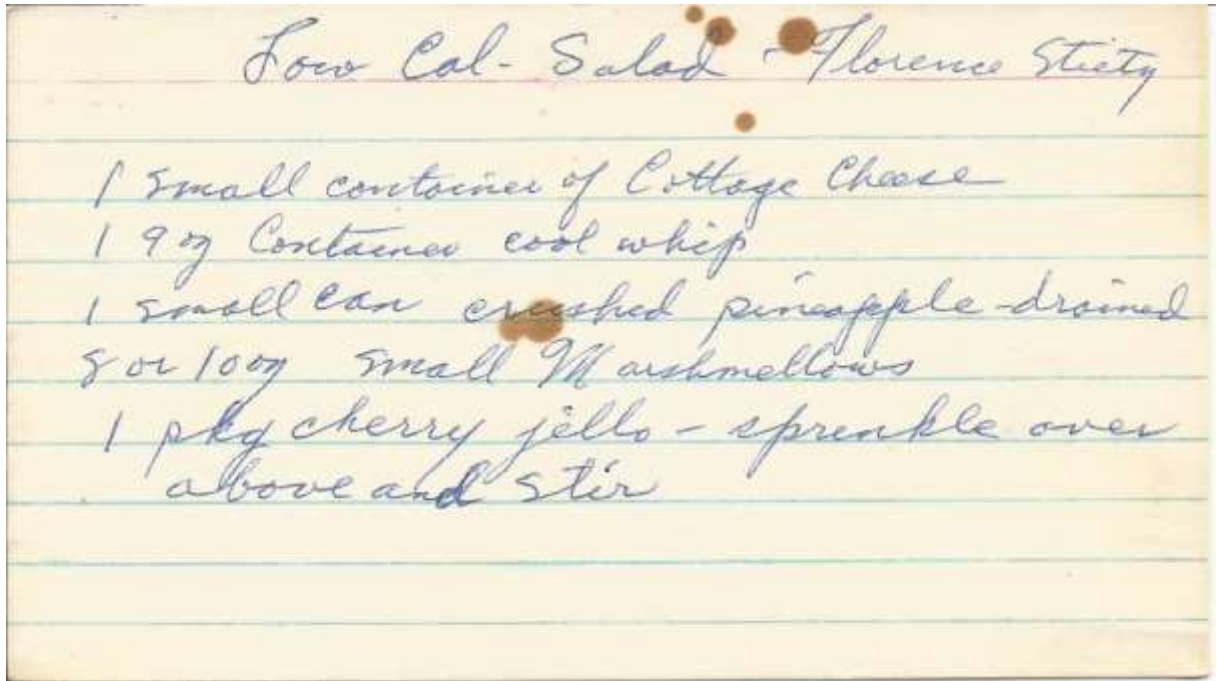 Low Cal- Salad - Florence
1 small container of Cottage Cheese
1 9 oz Container cool whip
1 small can crushed pineapple-drained
8 or 10 oz small Marshmellows
1 pkg cherry jello - sprenkle over
above and stir